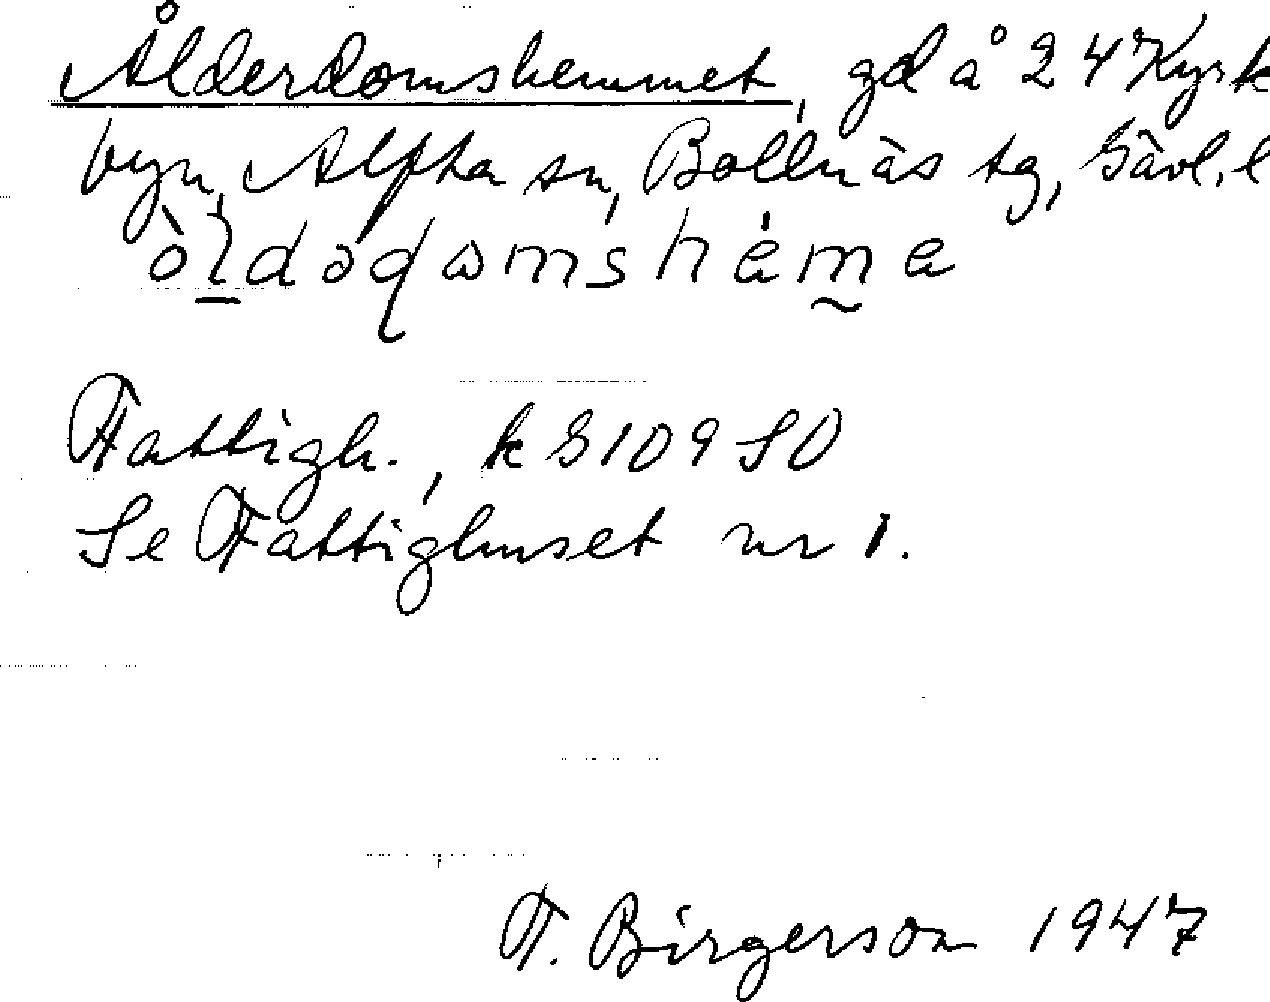 Ålderdomshemmet, gd å 24 Kyrk
byn, Alfta sn, Bollnäs tg, Gävl. l
òldəɖωmshéme
Fattigh., k G109 SO
Se Fattighuset nr 1.
F. Birgerson 1947